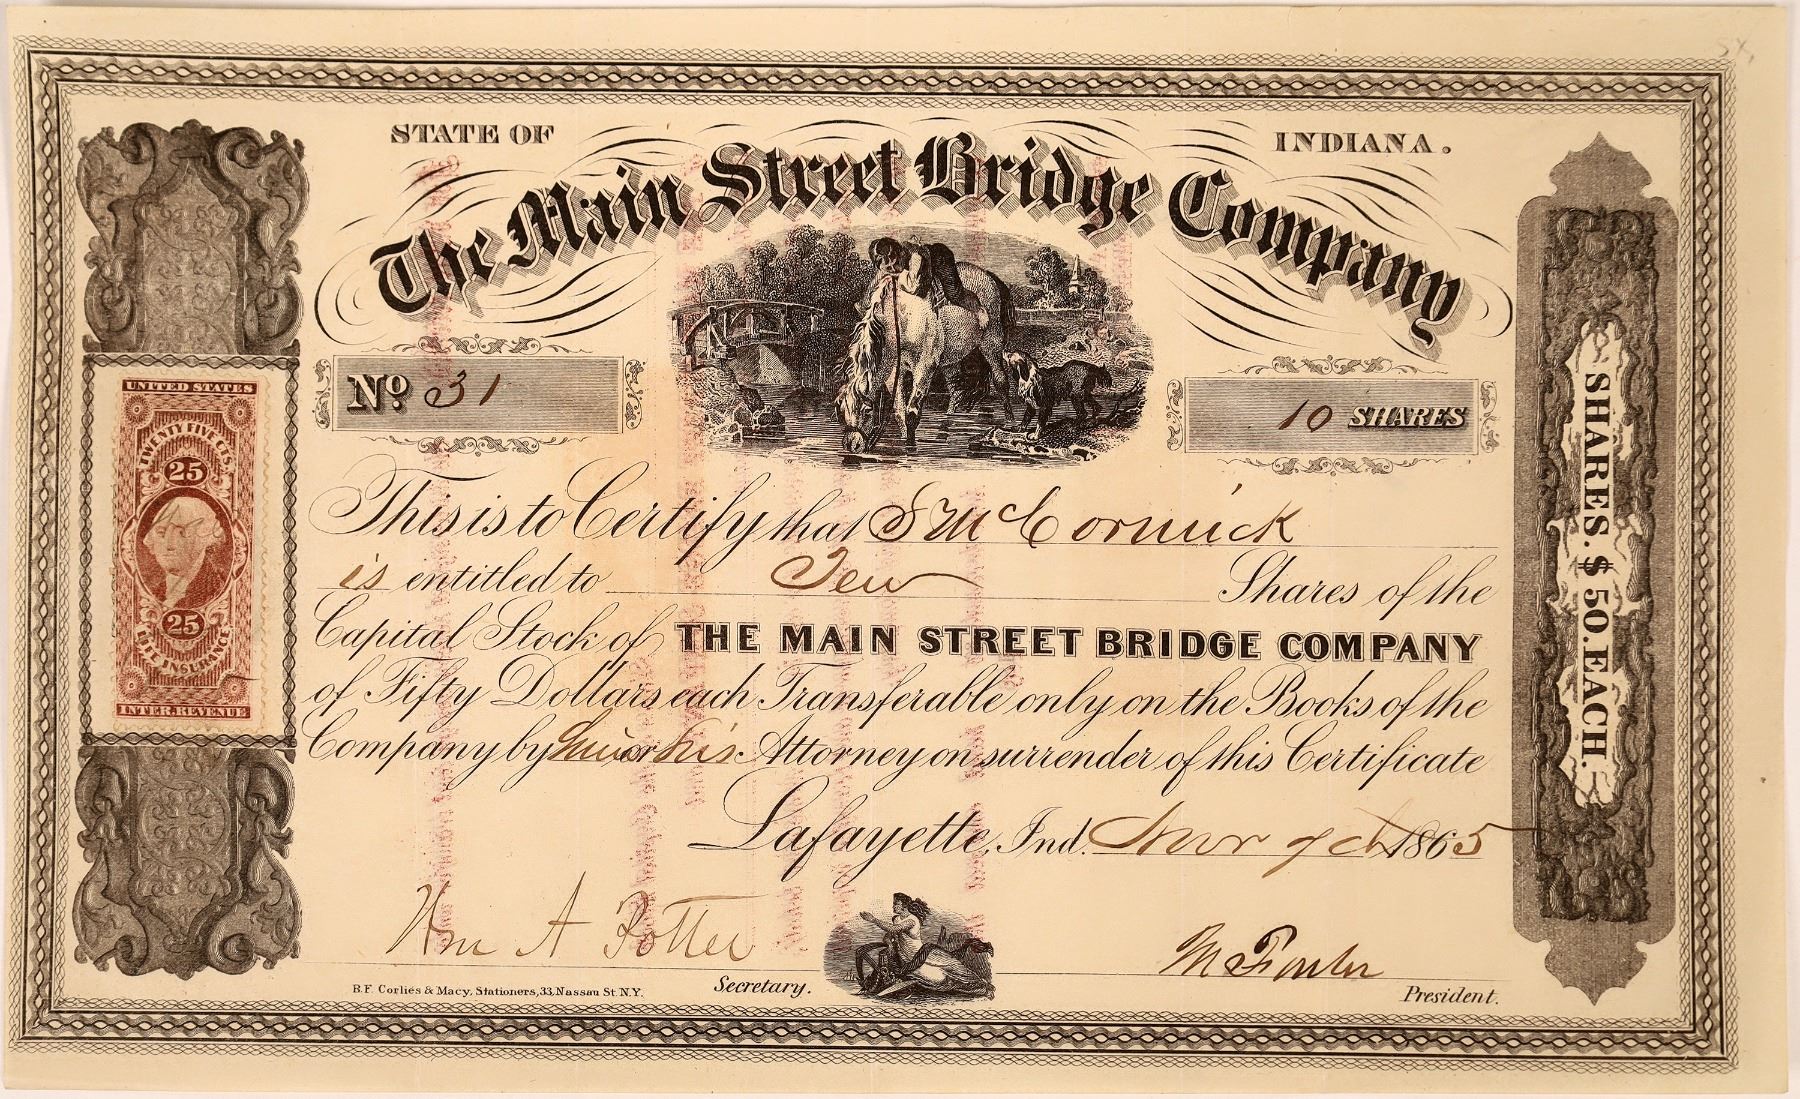 STATE OF INDIANA.
The Main Street Bridge Company
No 31
10 SHARES
This is to Certify that S McCormick
is entitled to Ten Shares of the
Capital Stock of THE MAIN STREET BRIDGE COMPANY
of Fifty Dollars each Transferable only on the Books of the
Company by him or his Attorney on surrender of this Certificate
Lafayette, Ind. 1865
Wm A Potter
Secretary.
M Fowler
President.
B.F. Corlies & Macy, Stationers, 33, Nassau St. N.Y.
UNITED STATES
TWENTY FIVE CTS.
25
25
LIFE INSURANCE
INTER. REVENUE
SHARES. $50. EACH.